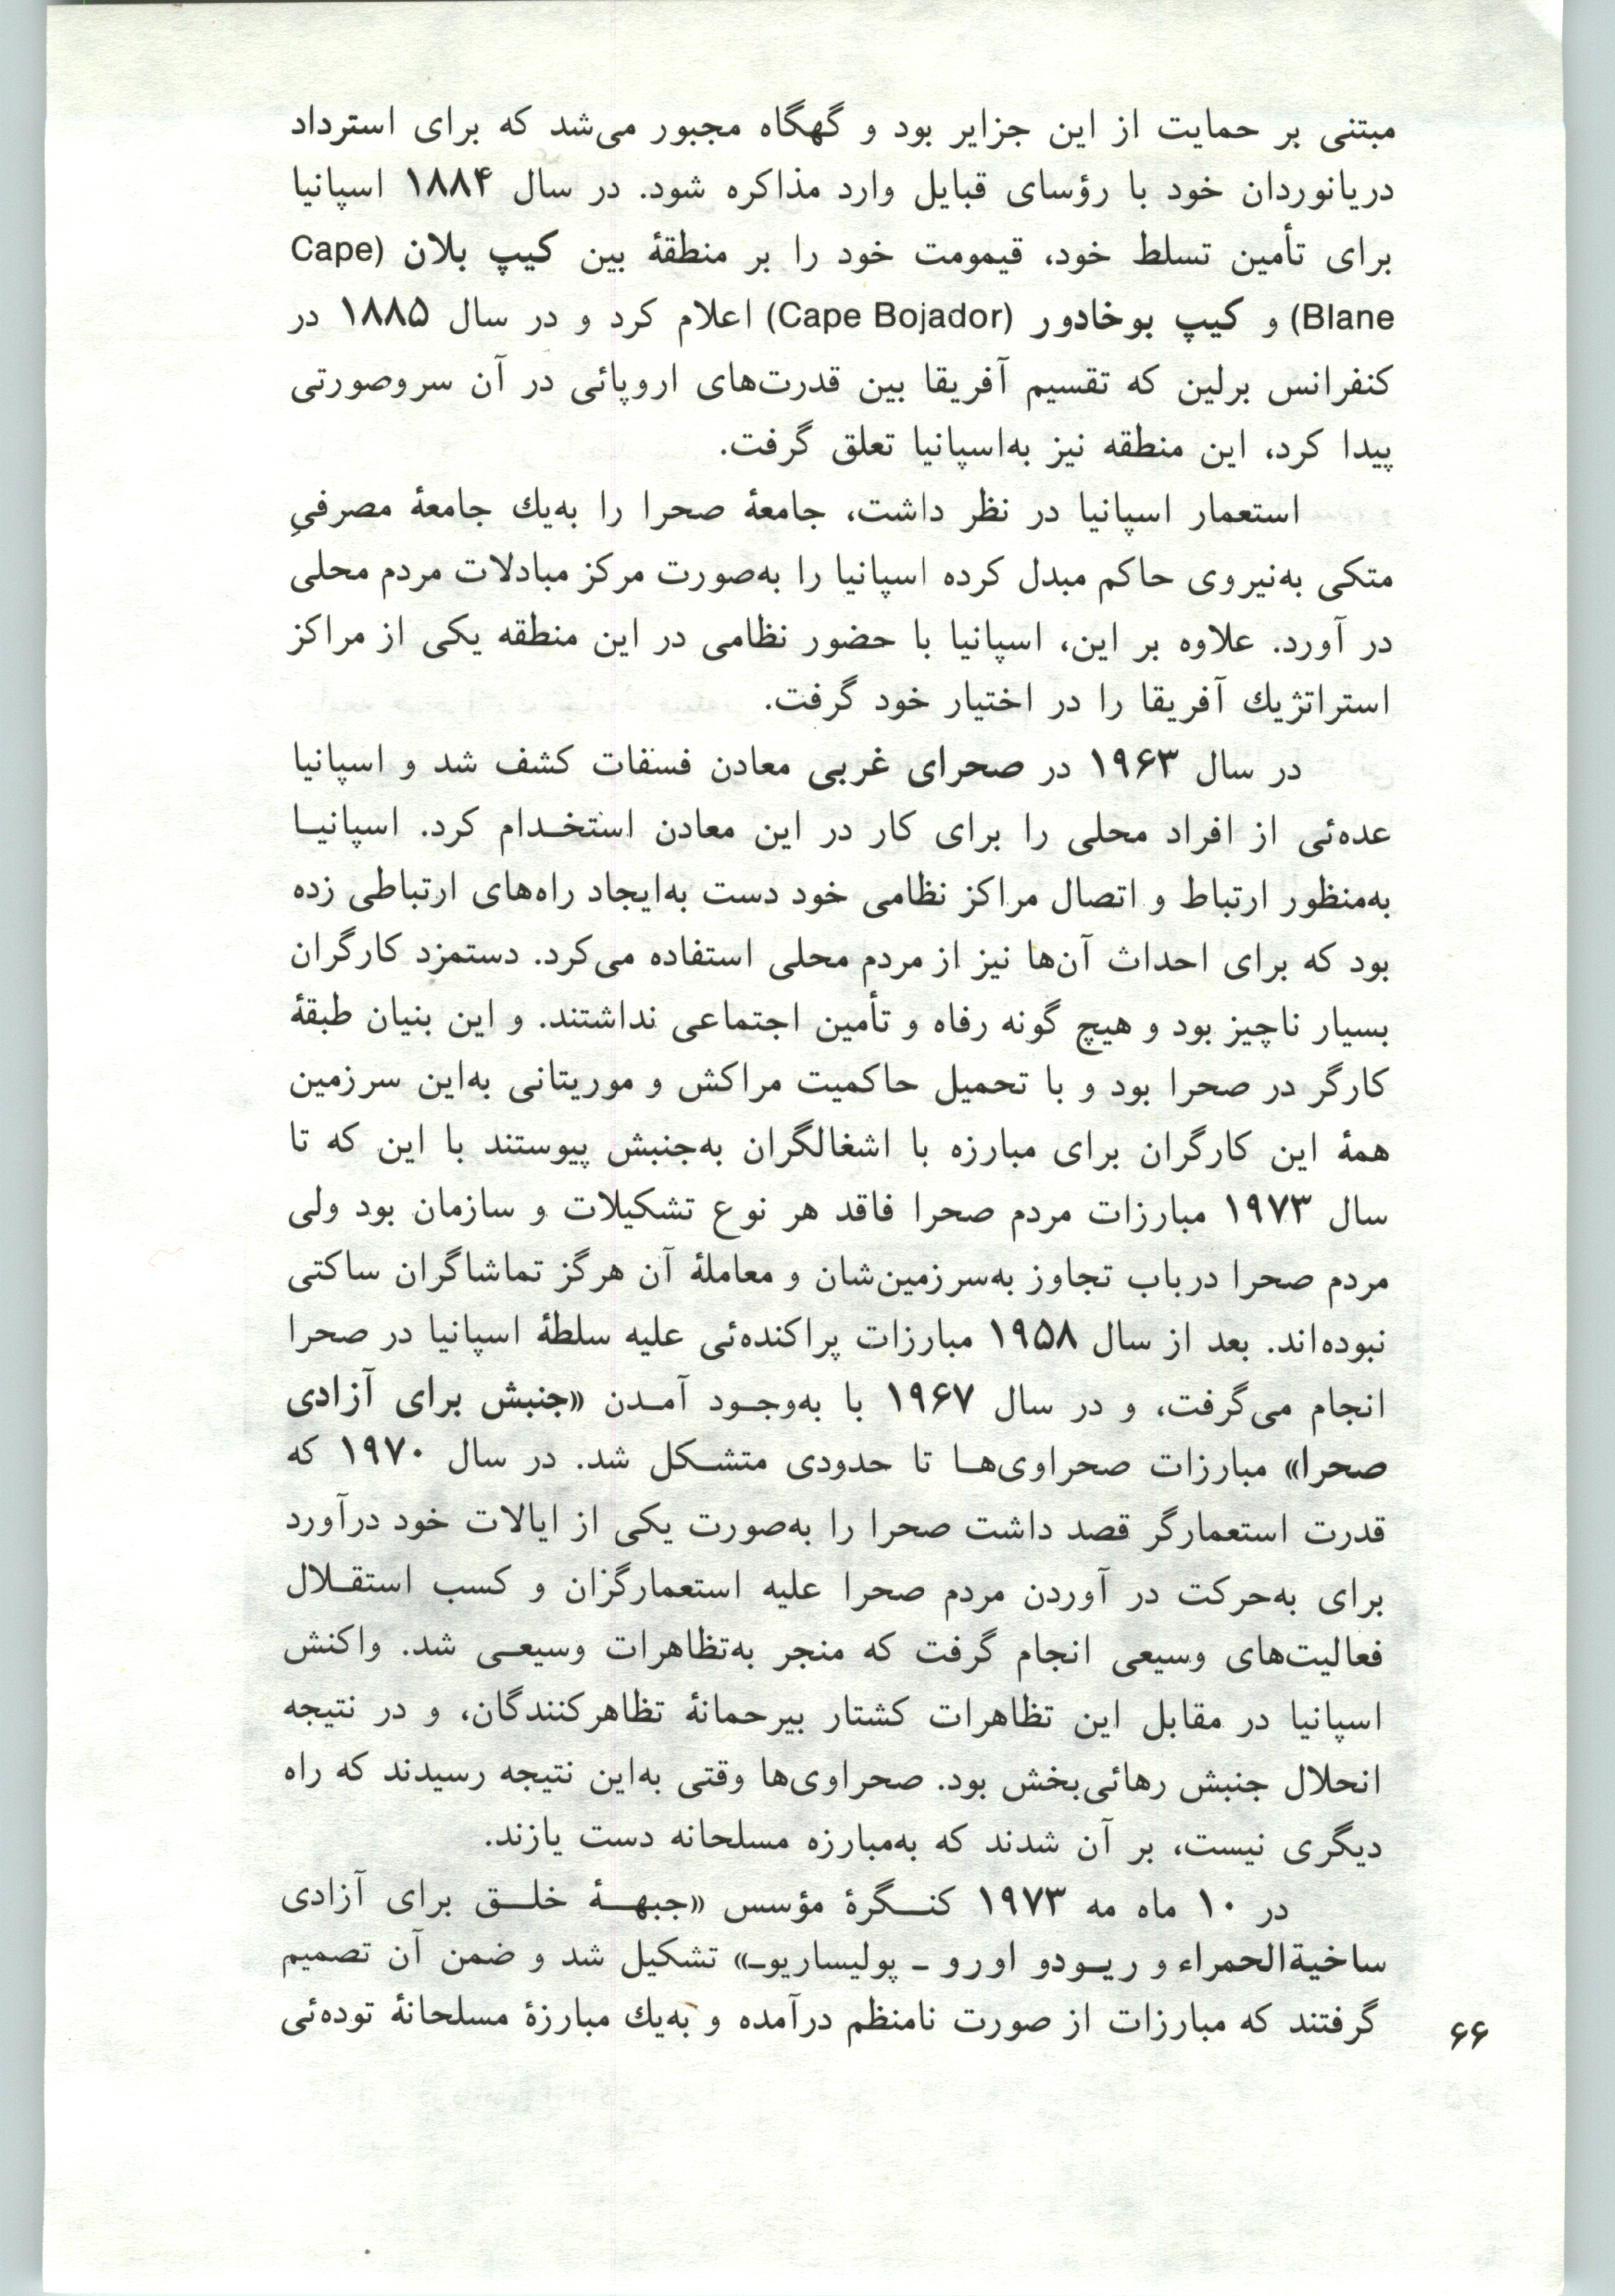 مبتنی بر حمایت از این جزایر بود و گهگاه مجبور می‌شد که برای استرداد
دریانوردان خود با رؤسای قبایل وارد مذاکره شود. در سال ۱۸۸۴ اسپانیا
برای تأمین تسلط خود، قیمومت خود را بر منطقۀ بین کیپ بلان (Cape
Blane) و کیپ بوخادور (Cape Bojador) اعلام کرد و در سال ۱۸۸۵ در
کنفرانس برلین که تقسیم آفریقا بین قدرت‌های اروپائی در آن سروصورتی
پیدا کرد، این منطقه نیز به‌اسپانیا تعلق گرفت.
استعمار اسپانیا در نظر داشت، جامعۀ صحرا را به‌یك جامعۀ مصرفیِ
متکی به‌نیروی حاکم مبدل کرده اسپانیا را به‌صورت مرکز مبادلات مردم محلی
در آورد. علاوه بر این، اسپانیا با حضور نظامی در این منطقه یکی از مراکز
استراتژیك آفریقا را در اختیار خود گرفت.
در سال ۱۹۶۳ در صحرای غربی معادن فسفات کشف شد و اسپانیا
عده‌ئی از افراد محلی را برای کار در این معادن استخـدام کرد. اسپانیـا
به‌منظور ارتباط و اتصال مراکز نظامی خود دست به‌ایجاد راه‌های ارتباطی زده
بود که برای احداث آن‌ها نیز از مردم محلی استفاده می‌کرد. دستمزد کارگران
بسیار ناچیز بود و هیچ گونه رفاه و تأمین اجتماعی نداشتند. و این بنیان طبقۀ
کارگر در صحرا بود و با تحمیل حاکمیت مراکش و موریتانی به‌این سرزمین
همۀ این کارگران برای مبارزه با اشغالگران به‌جنبش پیوستند با این که تا
سال ۱۹۷۳ مبارزات مردم صحرا فاقد هر نوع تشکیلات و سازمان بود ولی
مردم صحرا درباب تجاوز به‌سرزمین‌شان و معاملۀ آن هرگز تماشاگران ساکتی
نبوده‌اند. بعد از سال ۱۹۵۸ مبارزات پراکنده‌ئی علیه سلطۀ اسپانیا در صحرا
انجام می‌گرفت، و در سال ۱۹۶۷ با به‌وجـود آمـدن «جنبش برای آزادی
صحرا» مبارزات صحراوی‌هـا تا حدودی متشـکل شد. در سال ۱۹۷۰ که
قدرت استعمارگر قصد داشت صحرا را به‌صورت یکی از ایالات خود درآورد
برای به‌حرکت در آوردن مردم صحرا علیه استعمارگزان و کسب استقـلال
فعالیت‌های وسیعی انجام گرفت که منجر به‌تظاهرات وسیعـی شد. واکنش
اسپانیا در مقابل این تظاهرات کشتار بیرحمانۀ تظاهرکنندگان، و در نتیجه
انحلال جنبش رهائی‌بخش بود. صحراوی‌ها وقتی به‌این نتیجه رسیدند که راه
دیگری نیست، بر آن شدند که به‌مبارزه مسلحانه دست یازند.
در ۱۰ ماه مه ۱۹۷۳ کنـگرۀ مؤسس «جبهـۀ خلـق برای آزادی
ساخیةالحمراء و ریـودو اورو ـ پولیساریوـ» تشکیل شد و ضمن آن تصمیم
گرفتند که مبارزات از صورت نامنظم درآمده و به‌یك مبارزۀ مسلحانۀ توده‌ئی
۶۶